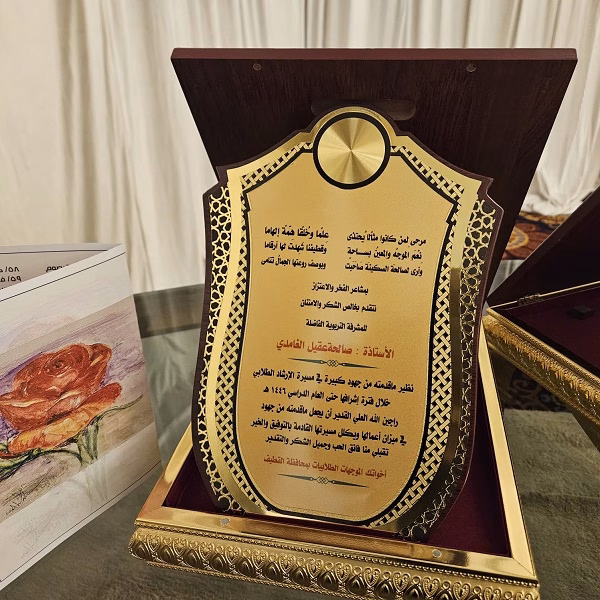 مرحى لمن كانوا مثالاً يحتذى علمًا وخلقًا همّة إلهاما
نعم الموجه والمعين بساحة وقطيفنا شهدت لها أرقاما
وأرى لصالحة السكينة صاحبت ويوسف روعتها الجمال تنامى
بمشاعر الفخر والاعتزاز
نتقدم بخالص الشكر والامتنان
للمشرفة التربوية الفاضلة
الأستاذة : صالحة عقيل الغامدي
نظير ماقدمته من جهود كبيرة في مسيرة الإرشاد الطلابي
خلال فترة إشرافها حتى العام الدراسي ١٤٤٦ هـ
راجين الله العلي القدير أن يجعل ماقدمته من جهود
في ميزان أعمالها ويكلل مسيرتها القادمة بالتوفيق والخير
تقبلي منّا فائق الحب وجميل الشكر والتقدير
أخواتك الموجهات الطلابيات بمحافظة القطيف